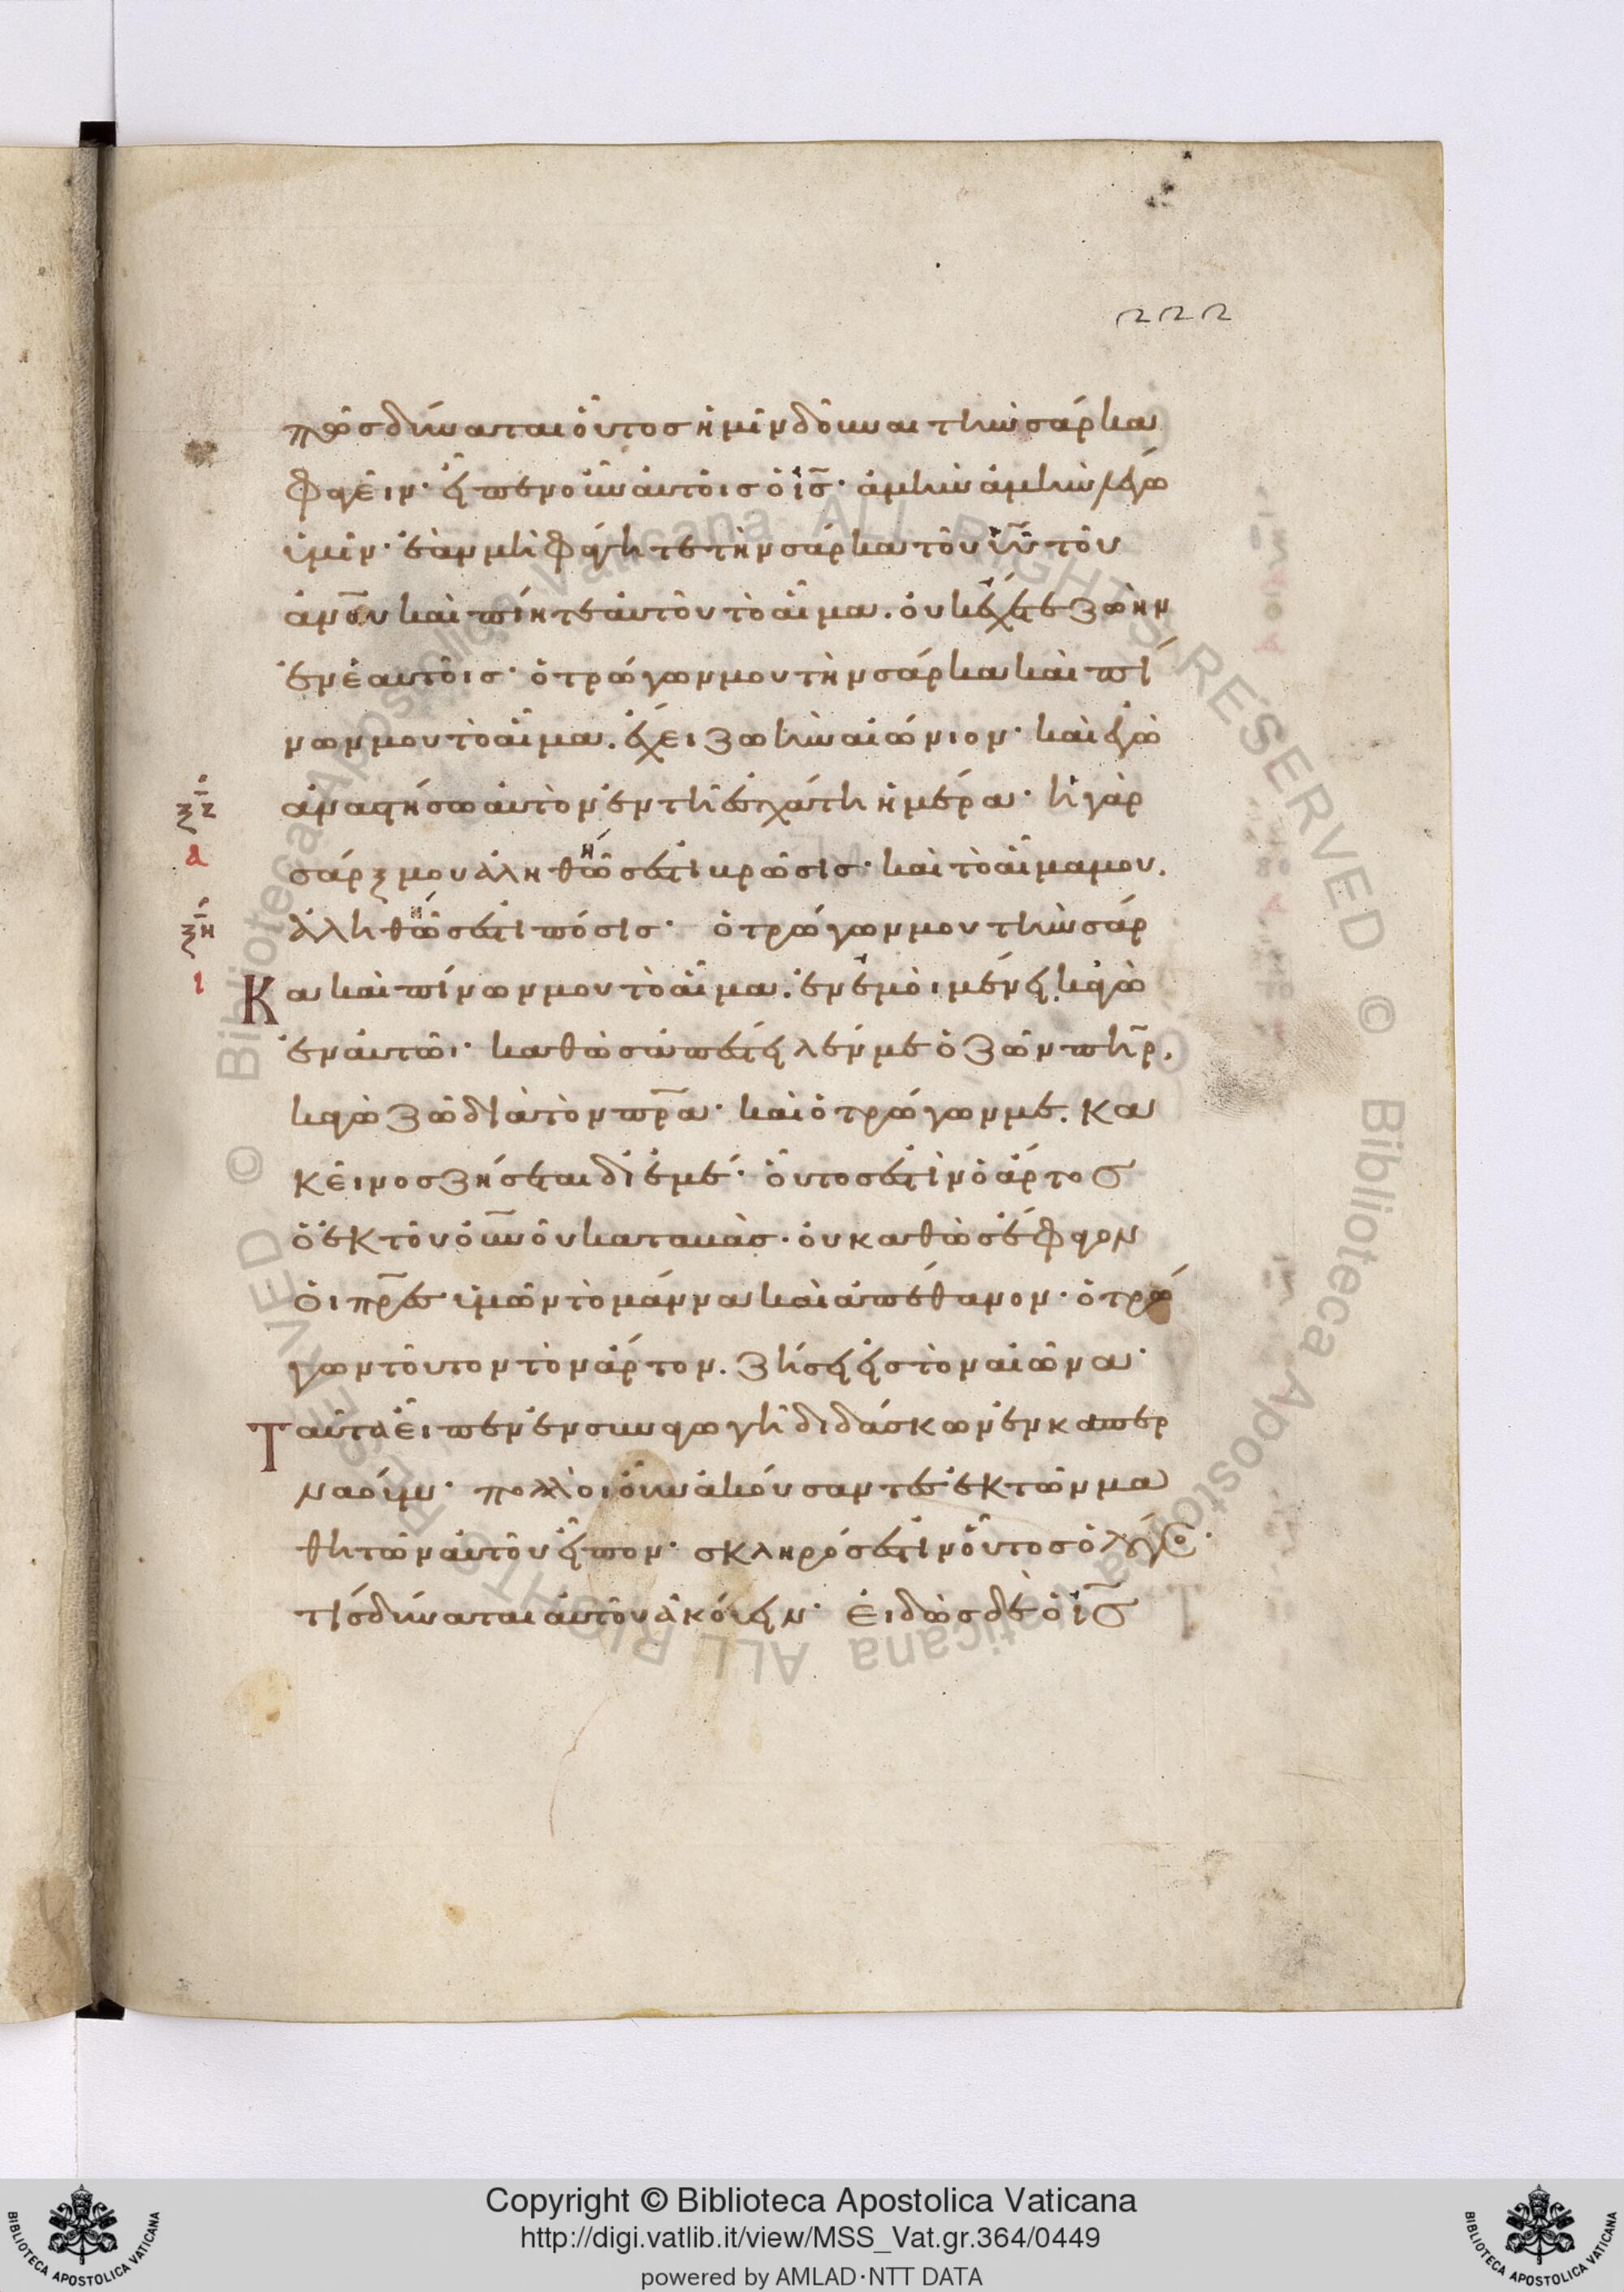 222
πῶσ δύναται οὗτοσ ἡμῖν δοῦναι τὴν σάρκα
φαγεῖν· εἶπεν οὖν αὐτοῖσ ὁ ι̅σ̅· ἀμὴν ἀμὴν λέγω
ὑμῖν· ἐὰν μὴ φάγητε τὴν σάρκα τοῦ υ̅υ̅ τοῦ
α̅ν̅ο̅υ̅ καὶ πίητε αὐτοῦ τὸ αἷμα. οὐκ ἔχετε ζωὴν
ἐν ἑαυτοῖσ· ὁ τρώγων μου τὴν σάρκα καὶ πί
νων μου τὸ αἷμα. ἔχει ζωὴν αἰώνιον· καὶ ἐγὼ
ἀναστήσω αὐτὸν ἐν τῆ ἐσχάτη ἡμέρα· ἡ γὰρ
ξζ
α
σάρξ μου ἀληθῶσ ἐστι βρῶσισ· καὶ τὸ αἷμα μου.
ξη
ἀληθῶσ ἐστι πόσισ· ὁ τρώγων μου τὴν σάρ
ι
Κα καὶ πίνων μου τὸ αἷμα. ἐν ἐμοὶ μένει. κἀγὼ
ἐν αὐτῶι· καθὼσ ἀπέστειλέν με ὁ ζῶν π̅η̅ρ̅.
κἀγὼ ζῶ διὰ τὸν π̅ρ̅α̅· καὶ ὁ τρώγων με. κα
κεῖνοσ ζήσεται δι ἐμέ· οὗτοσ ἐστὶν ὁ ἄρτοσ
ὁ ἐκ τοῦ ο̅υ̅ν̅ο̅υ̅ καταβὰσ· οὐ καθὼσ ἔφαγον
οἱ π̅ρ̅ε̅σ̅ ὑμῶν τὸ μάννα καὶ ἀπέθανον· ὁ τρώ
γων τοῦτον τὸν ἄρτον. ζήσει εἰσ τὸν αἰῶνα·
Ταῦτα εἶπεν ἐν συναγωγῆ διδάσκων ἐν καπερ
ναούμ· πολλοὶ οὖν ἀκούσαντεσ ἐκ τῶν μα
θητῶν αὐτοῦ εἶπον· σκληρόσ ἐστὶν οὗτοσ ὁ λόγοσ·
τίσ δύναται αὐτοῦ ἀκούειν· εἰδὼσ δὲ ὁ ι̅σ̅
Copyright © Biblioteca Apostolica Vaticana
http://digi.vatlib.it/view/MSS_Vat.gr.364/0449
powered by AMLAD·NTT DATA
BIBLIOTECA APOSTOLICA VATICANA
BIBLIOTECA APOSTOLICA VATICANA
© Biblioteca Apostolica Vaticana ALL RIGHTS RESERVED
© Biblioteca Apostolica Vaticana ALL RIGHTS RESERVED